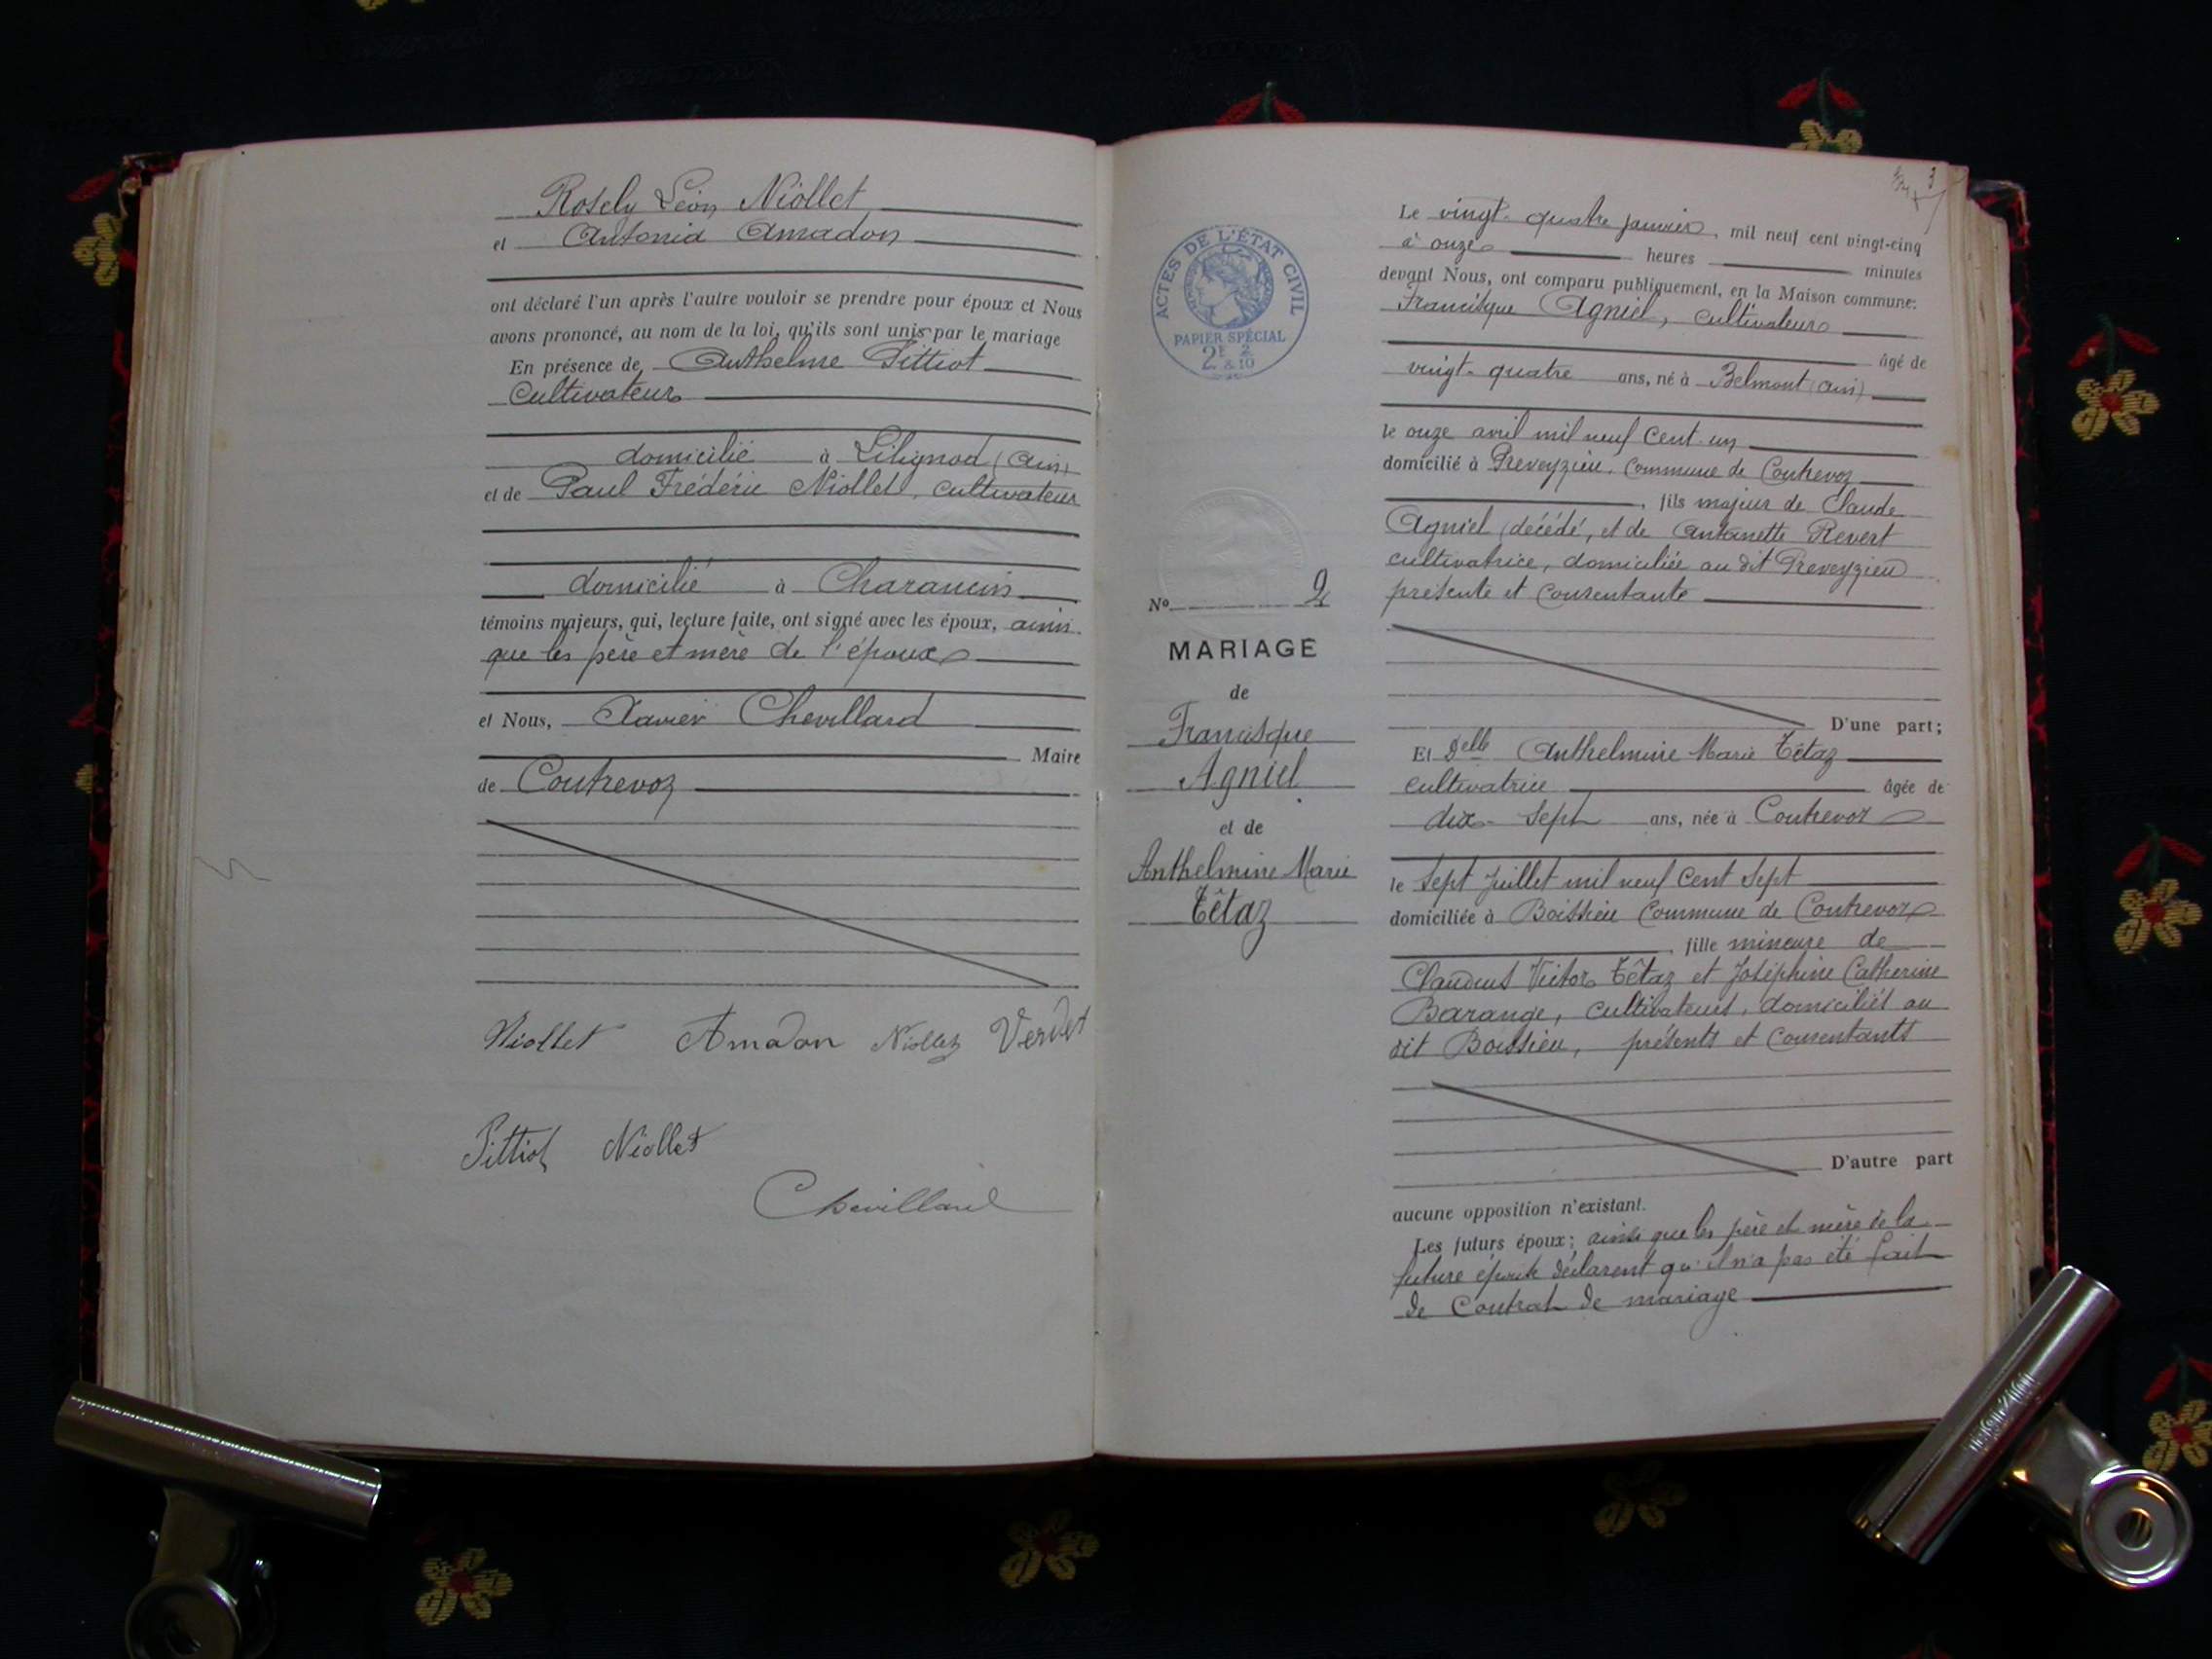 Rosely Léon Niollet
et Antonia Amadon
ont déclaré l'un après l'autre vouloir se prendre pour époux et Nous
avons prononcé, au nom de la loi, qu'ils sont unis par le mariage
En présence de Anthelme Pittiot
Cultivateur
domicilié à Lilignod (Ain)
et de Paul Frédéric Niollet, cultivateur
domicilié à Charancin
témoins majeurs, qui, lecture faite, ont signé avec les époux, ainsi
que les père et mère de l'époux
et Nous, Xavier Chevillard
Maire
de Contrevoz
Niollet Amadon Niollet Verdet
Pittiot Niollet
Chevillard
3
ACTES DE L'ÉTAT CIVIL
PAPIER SPÉCIAL
2F 2/10
No 2
MARIAGE
de
Francisque
Agniel
et de
Anthelmine Marie
Têtaz
Le vingt-quatre janvier, mil neuf cent vingt-cinq
à onze heures minutes
devant Nous, ont comparu publiquement, en la Maison commune:
Francisque Agniel, cultivateur
âgé de
vingt-quatre ans, né à Belmont (Ain)
le onze avril mil neuf cent-un
domicilié à Preveyzieu, commune de Contrevoz
, fils majeur de Claude
Agniel, décédé, et de Antoinette Revert
cultivatrice, domiciliée au dit Preveyzieu
présente et consentante
D'une part;
Et Delle Anthelmine Marie Têtaz
cultivatrice âgée de
dix-sept ans, née à Contrevoz
le sept juillet mil neuf cent sept
domiciliée à Boissieu commune de Contrevoz
, fille mineure de
Claudius Victor Têtaz et Joséphine Catherine
Barange, cultivateurs, domiciliés au
dit Boissieu, présents et consentants
D'autre part
aucune opposition n'existant.
Les futurs époux; ainsi que les père et mère de la
future épouse déclarent qu'il n'a pas été fait
de contrat de mariage